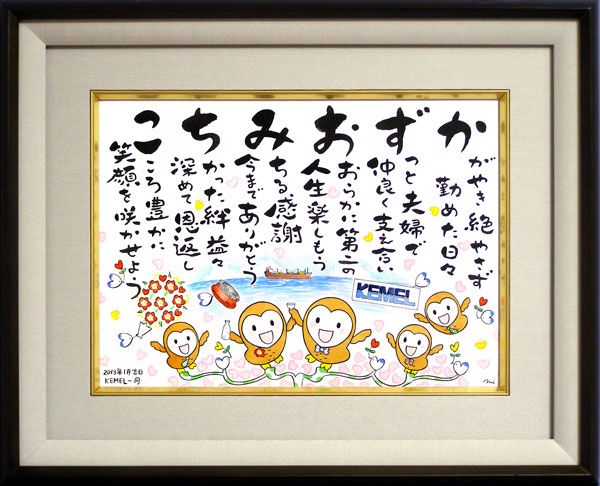 か
がやき絶やさず
勤めた日々
ず
っと夫婦で
仲良く支え合い
お
おらかに第二の
人生楽しもう
み
ちる感謝
今までありがとう
ち
かった絆益々
深めて恩返し
こ
ころ豊かに
笑顔を咲かせよう
KEMEL
2013年1月吉日
KEMEL一同